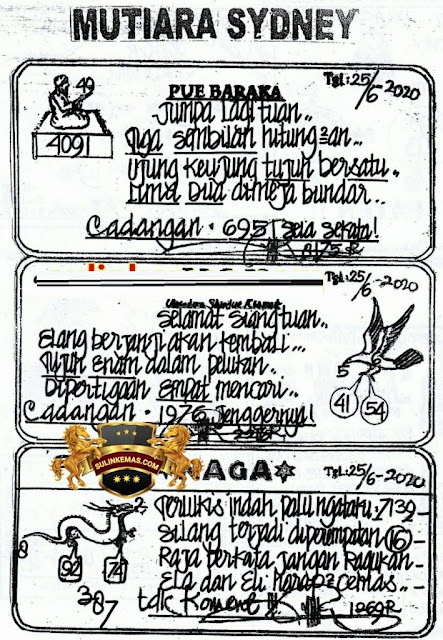 MUTIARA SYDNEY
Tgl: 25/6-2020
PUE BARAKA
Jumpa lagi tuan..
Tiga sembilan hitung²an...
Ujung keujung tujuh bersatu..
Lima Dua dimeja bundar..
Cadangan · 6951 seia sekata!
49
4091
Tgl: 25/6-2020
Selamat siang tuan..
Elang berjanji akan kembali...
Tujuh enam dalam pelukan..
Dipertigaan empat mencari..
Cadangan · 1976 Jenggernya!
5
41 54
NAGA
Tgl: 25/6-2020
SULINKEMAS.COM
Terlukis indah palu ngataku · 7139 -
Silang terjadi diperempatan 16 -
Raja berkata jangan ragukan -
Ela dan Eli harap² cemas.. -
tak koment !!
1269R
92 74
387